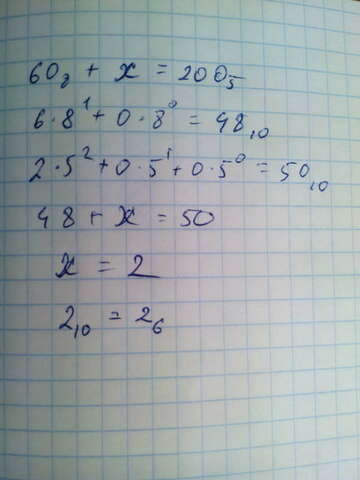 60₈ + x = 200₅
6·8¹ + 0·8⁰ = 48₁₀
2·5² + 0·5¹ + 0·5⁰ = 50₁₀
48 + x = 50
x = 2
2₁₀ = 2₆